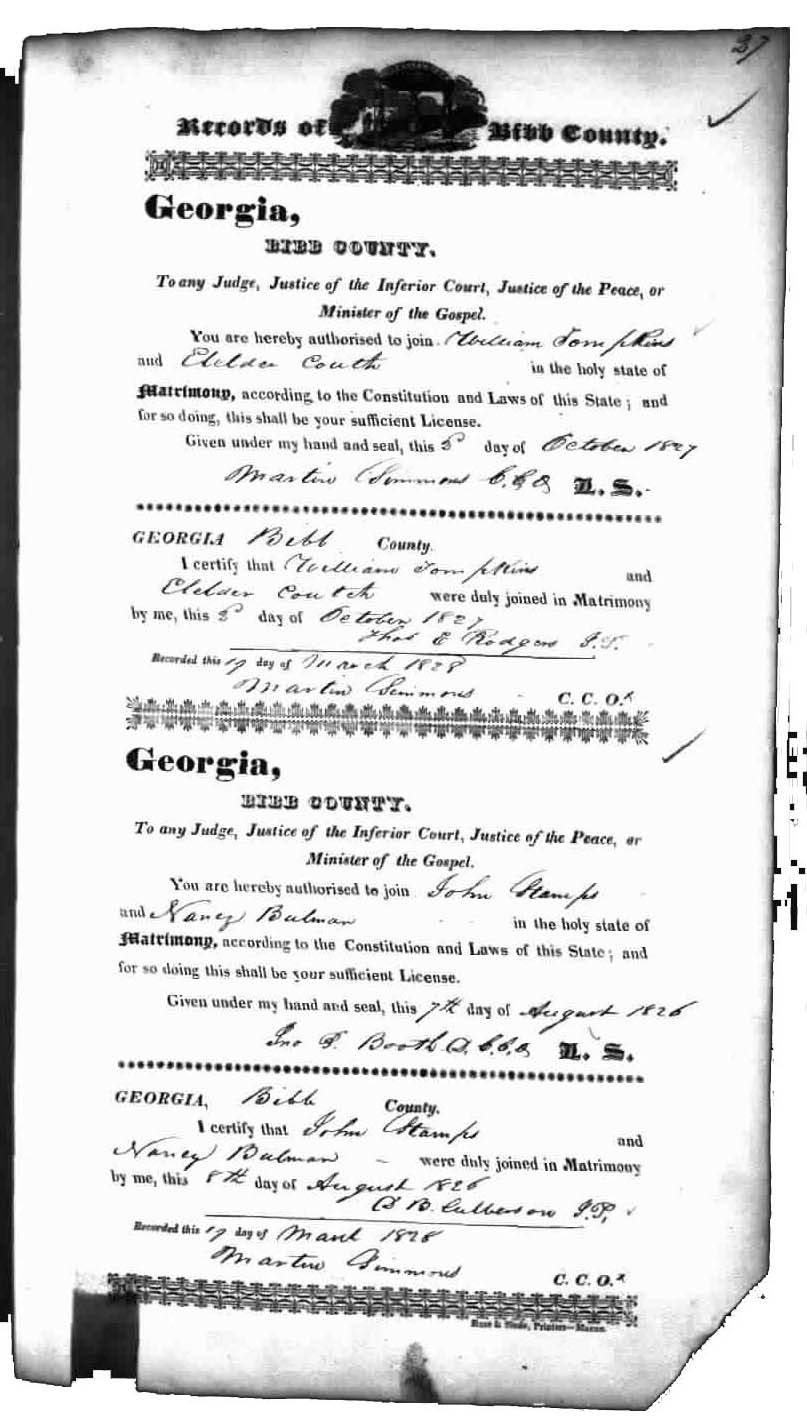 37
Records of Bibb County.
Georgia,
BIBB COUNTY.
To any Judge, Justice of the Inferior Court, Justice of the Peace, or
Minister of the Gospel.
You are hereby authorised to join William Tompkins
and Elelder Couth in the holy state of
Matrimony, according to the Constitution and Laws of this State; and
for so doing, this shall be your sufficient License.
Given under my hand and seal, this day of October 1827
Martin Simmons C.C.O L. S.
GEORGIA Bibb County.
I certify that William Tompkins and
Elelder Coutch were duly joined in Matrimony
by me, this day of October 1827
Thos E Rodgers J.P.
Recorded this 17 day of March 1828
Martin Simmons C. C. O.
Georgia,
BIBB COUNTY.
To any Judge, Justice of the Inferior Court, Justice of the Peace, or
Minister of the Gospel.
You are hereby authorised to join John Stamps
and Nancy Bulman in the holy state of
Matrimony, according to the Constitution and Laws of this State; and
for so doing this shall be your sufficient License.
Given under my hand and seal, this 7th day of August 1826
Jno Booth D.C.C.O L. S.
GEORGIA, Bibb County.
I certify that John Stamps and
Nancy Bulman were duly joined in Matrimony
by me, this 8th day of August 1826
D B. Culberson J.P.
Recorded this 17 day of March 1828
Martin Simmons C. C. O.
Printers—Macon.